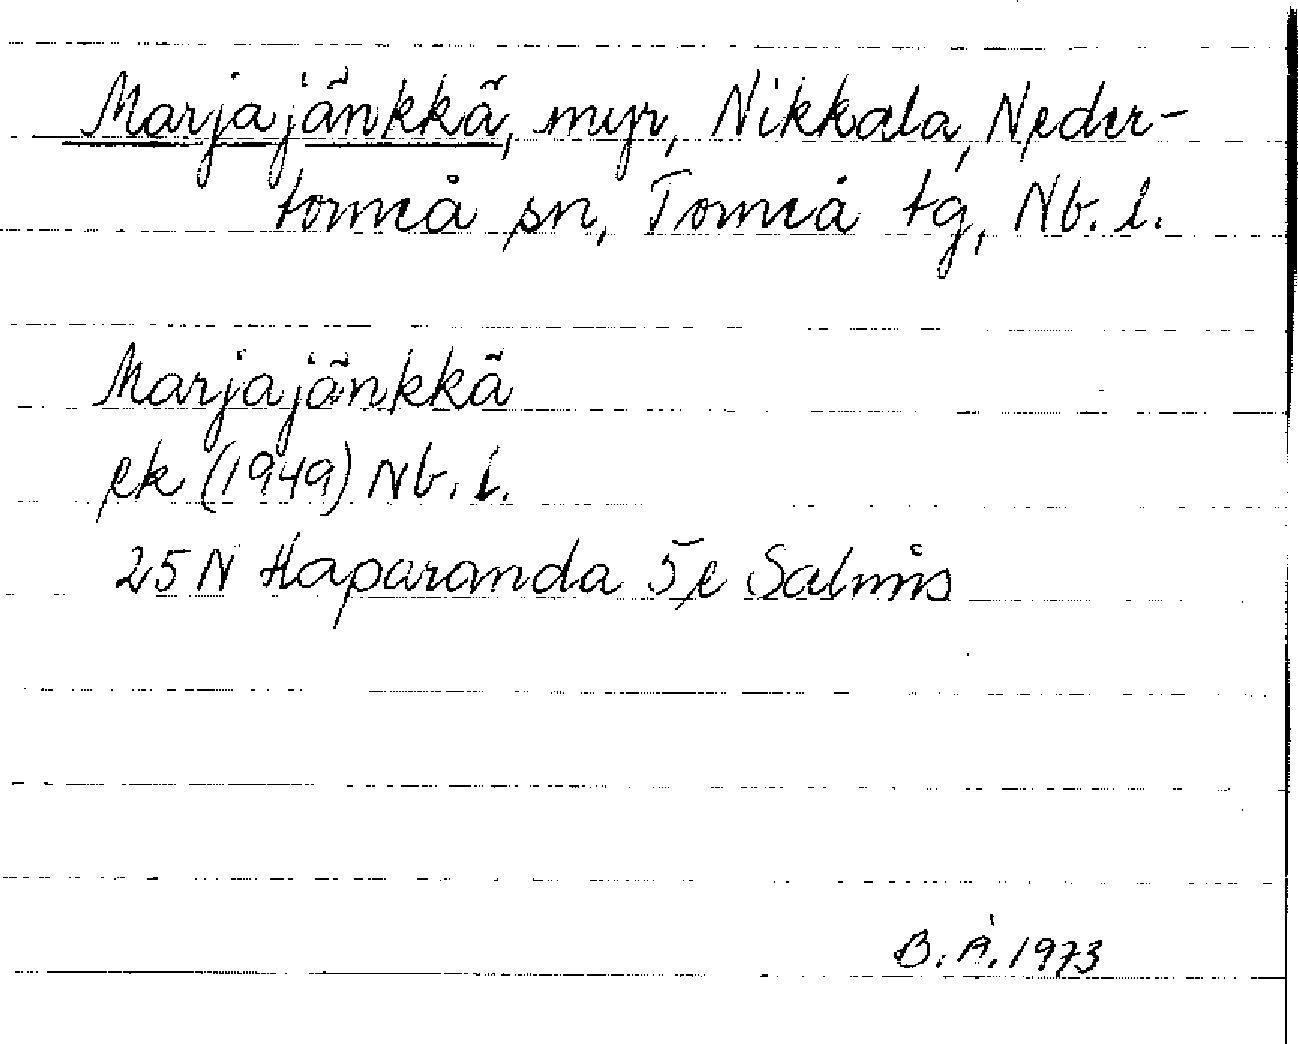 Marjajänkkä, myr, Nikkala, Neder-
torneå sn, Torneå tg, Nb. l.
Marjajänkkä
ek (1949) Nb. l.
25 N Haparanda 5e Salmis
B. Å. 1973